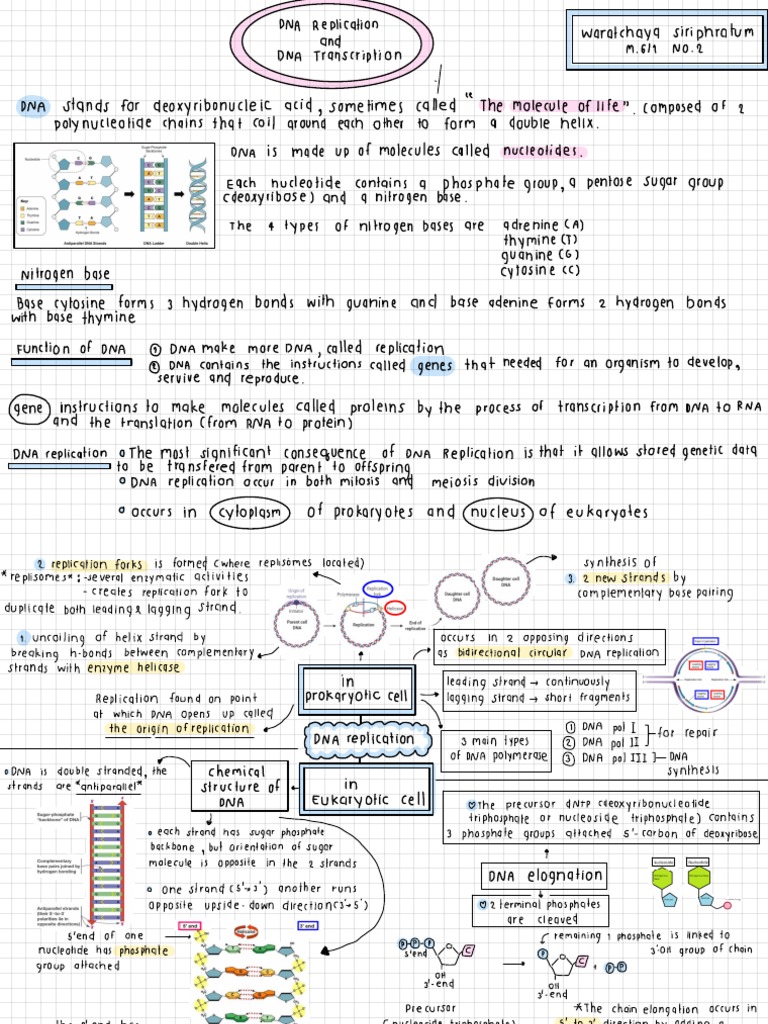 DNA Replication
and
DNA Transcription
Waratchaya Siriphratum
M.6/1 NO.2
DNA stands for deoxyribonucleic acid, sometimes called "The molecule of life". composed of 2
polynucleotide chains that coil around each other to form a double helix.
DNA is made up of molecules called nucleotides.
Each nucleotide contains a phosphate group, a pentose sugar group
(deoxyribose) and a nitrogen base.
The 4 types of nitrogen bases are adrenine (A)
thymine (T)
guanine (G)
cytosine (C)
Antiparallel DNA Strands
DNA Ladder
Double Helix
Nitrogen base
Base cytosine forms 3 hydrogen bonds with guanine and base adenine forms 2 hydrogen bonds
with base thymine
Function of DNA
1 DNA make more DNA, called replication
2 DNA contains the instructions called genes that needed for an organism to develop,
servive and reproduce.
gene instructions to make molecules called proteins by the process of transcription from DNA to RNA
and the translation (from RNA to protein)
DNA replication
The most significant consequence of DNA Replication is that it allows stored genetic data
to be transfered from parent to offspring
DNA replication occur in both mitosis and meiosis division
occurs in cytoplasm of prokaryotes and nucleus of eukaryotes
2 replication forks is formed (where replisomes located)
*replisomes*: -several enzymatic activities
- creates replication fork to
duplicate both leading & lagging strand.
1 uncoiling of helix strand by
breaking h-bonds between complementary
strands with enzyme helicase
Origin of
replication
Initiator
Parent cell
DNA
Polymerase
Replication
Helicase
Replication
End of
replication
Daughter cell
DNA
Daughter cell
DNA
synthesis of
3. 2 new strands by
complementary base pairing
occurs in 2 opposing directions
as bidirectional circular DNA replication
leading strand → continuously
lagging strand → short fragments
in
prokaryotic cell
Replication found on point
at which DNA opens up called
the origin of replication
DNA replication
3 main types
of DNA polymerase
1 DNA pol I
2 DNA pol II
for repair
3 DNA pol III
DNA
synthesis
in
Eukaryotic cell
chemical
structure of
DNA
DNA is double stranded, the
strands are *antiparallel*
Sugar-phosphate
"backbone" of DNA
Complementary
base pairs joined by
hydrogen bonding
Antiparallel strands
(their 5'-to-3'
polarities lie in
opposite directions)
each strand has sugar phosphate
backbone, but orientation of sugar
molecule is opposite in the 2 strands
one strand (5'→3') another runs
opposite upside-down direction (3'→5')
5'end of one
nucleotide has phosphate
group attached
5' end
3' end
The precursor dNTP (deoxyribonucleotide
triphosphate or nucleoside triphosphate) contains
3 phosphate groups attached 5'-carbon of deoxyribose
DNA elognation
2 terminal phosphates
are cleaved
remaining 1 phosphate is linked to
3'OH group of chain
P P P
5'end
C
OH
3'-end
P
C
OH
3'-end
+ P P
Precursor
(nucleoside triphosphate)
*The chain elongation occurs in
5' to 3' direction by adding a